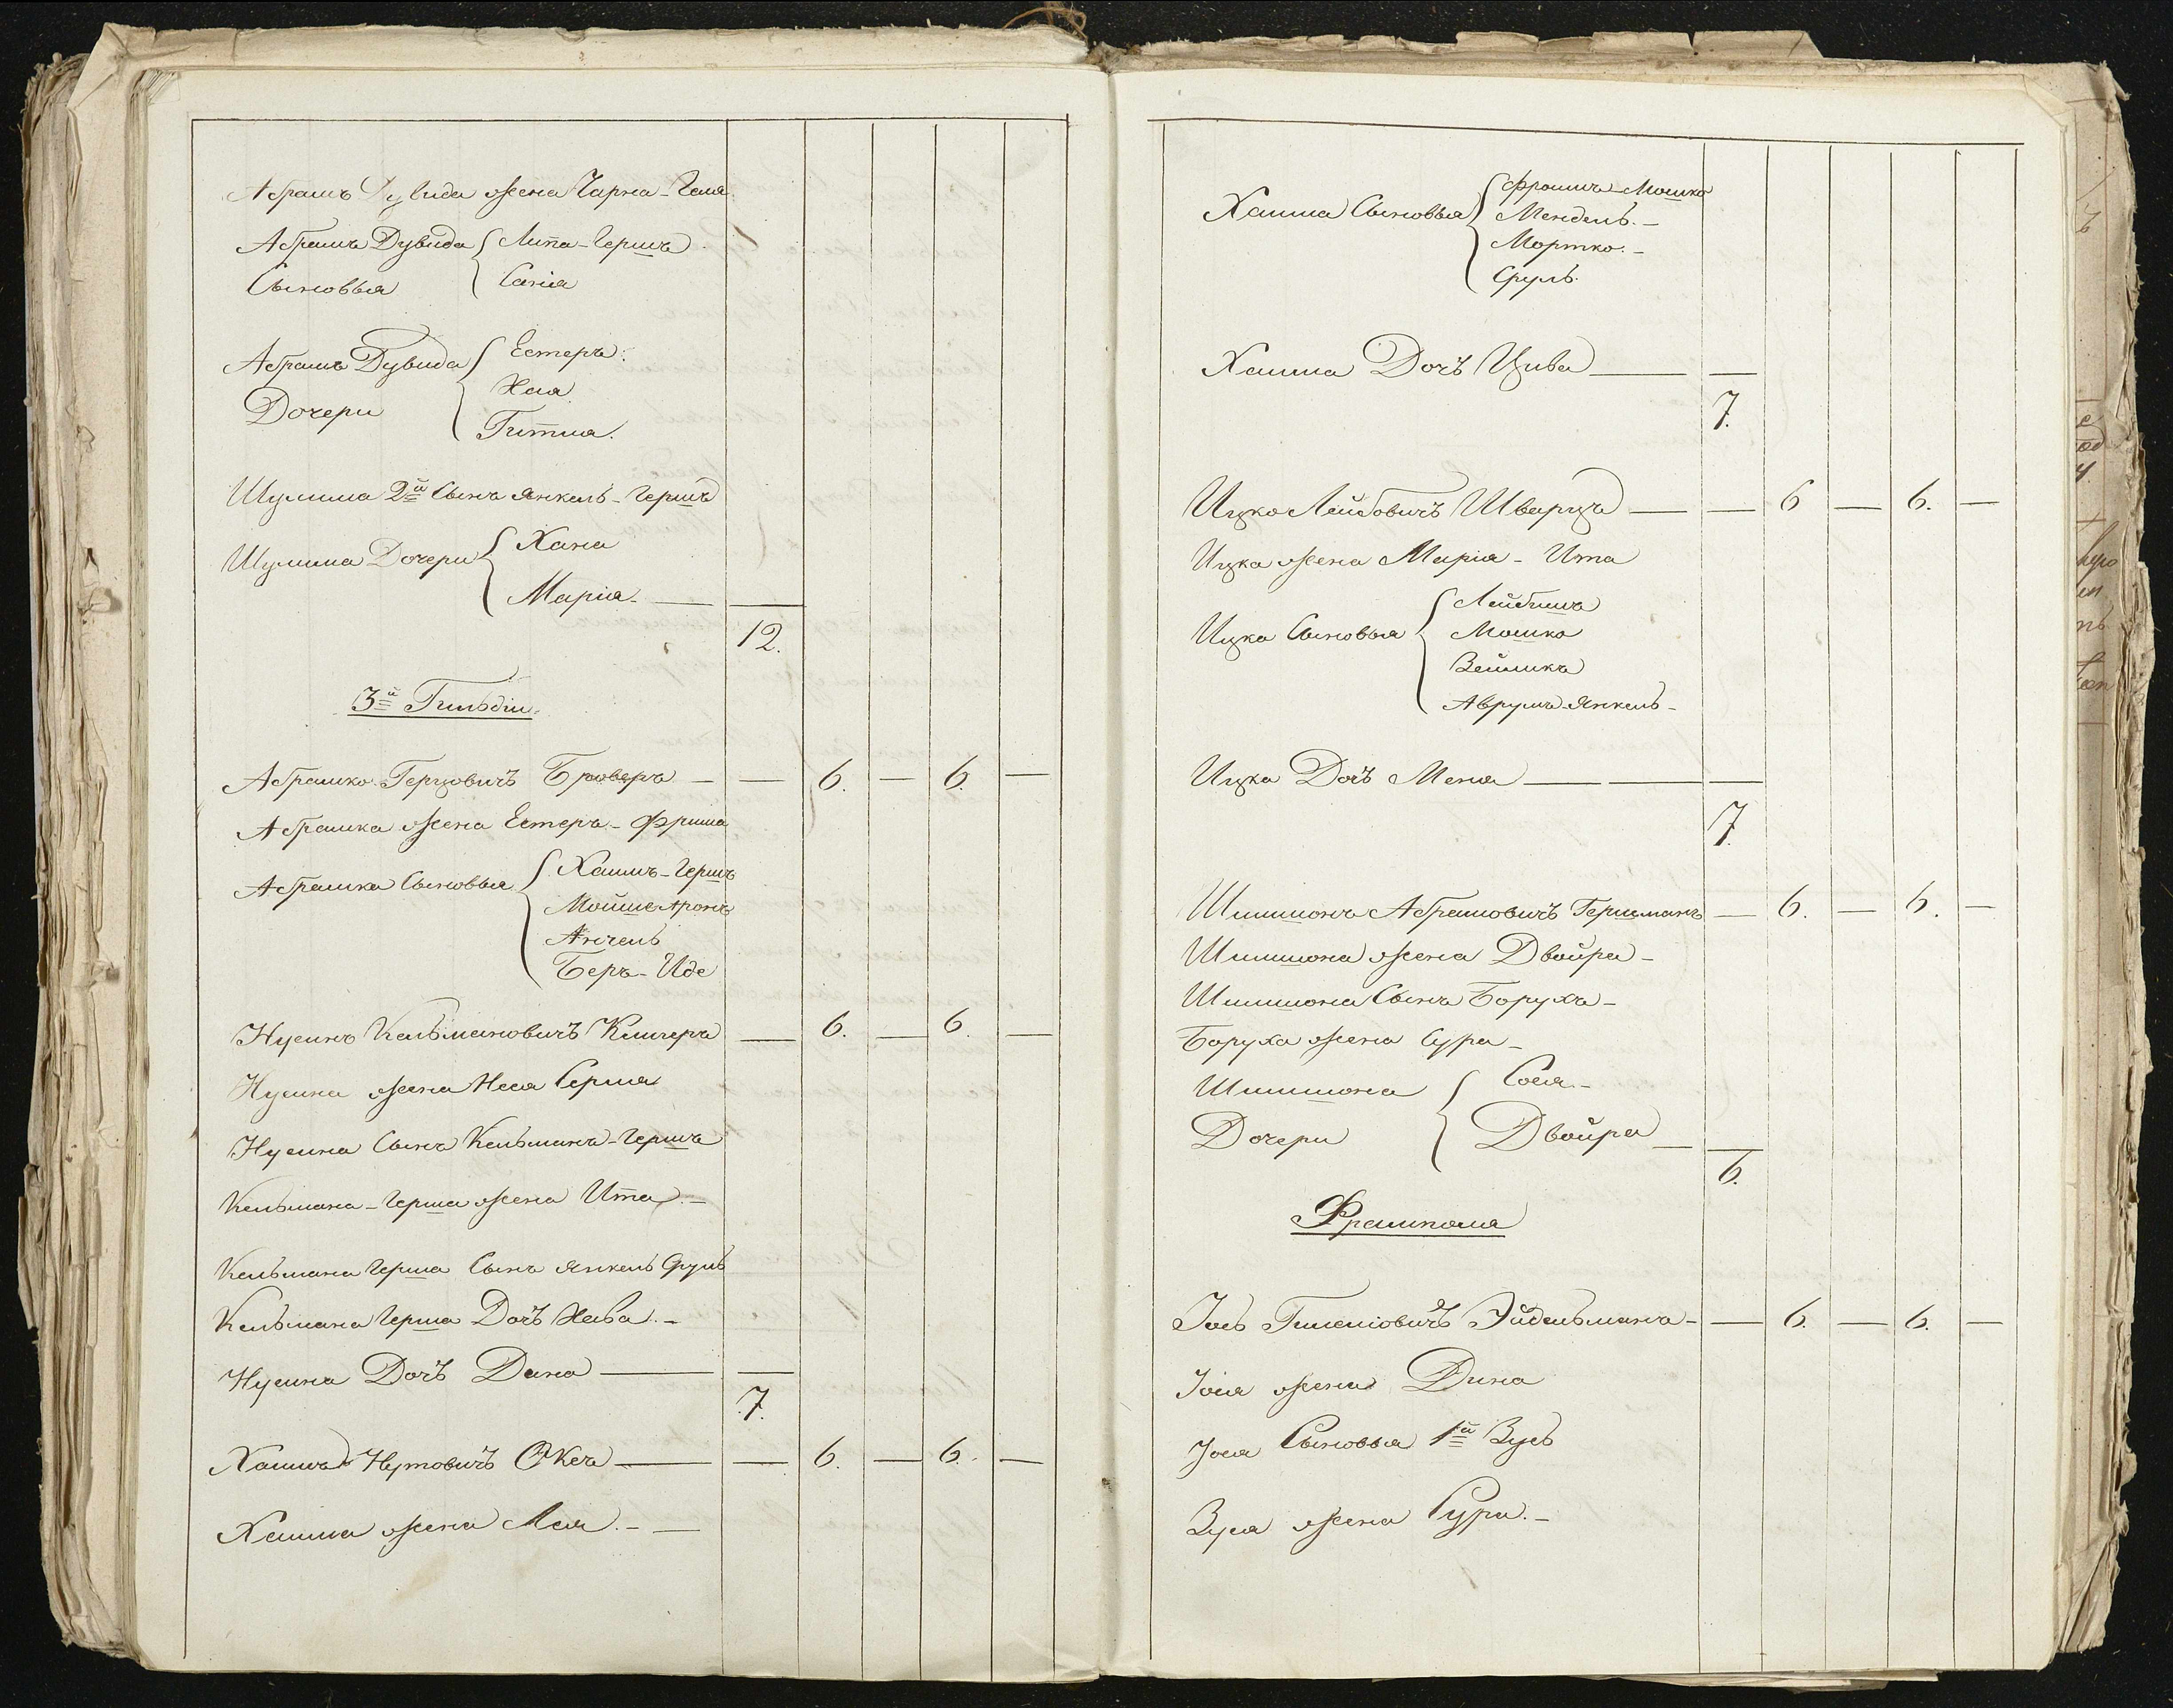 Абрамъ Дувида жена Чарна-Гая
Абрамъ Дувида Липа-Гершъ
Сыновья Саня
Абрамъ Дувида Естеръ
Дочери Хая
Гитля.
Шулима 2й Сынъ Янкель-Гершъ
Шулима Дочери Хана
Марія
12.
3й Гильдіи
Абрамко Герцовичъ Броверъ — — 6. — 6. —
Абрамка жена Естеръ-Фрима
Абрамка Сыновья Хаимъ-Гершъ
Мойше Аронъ
Анчель
Беръ-Иде
Нусинъ Кельмановичъ — 6. — 6. —
Нусина жена
Нусина Сынъ Кельманъ-Гершъ
Кельмана-Герша жена Ита. —
Кельмана Герша Сынъ Янкель Сруль
Кельмана Герша Дочь Хава. —
Нусина Дочь Дана — —
7.
Хаимъ Нутовичъ Оксъ — — 6. — 6. —
Хаима жена Лея. — —
Хаима Сыновья Фроимъ-Мошко
Мендель. —
Мортко. —
Сруль.
Хаима Дочь Цива — —
7.
Ицко Лейбовичъ Шварцъ — — 6 — 6. —
Ицка жена Марія - Ита
Ицка Сыновья Лейбишъ
Мошко
Зейликъ
Аврумъ Янкель —
Ицка Дочь Меня — — —
7.
Шимшонъ Абрамовичъ Гершманъ — 6. — 6. —
Шимшона жена Двойра —
Шимшона Сынъ Борухъ —
Боруха жена Сура —
Шимшона Сося. —
Дочери Двойра —
6.
Фрамполя
Іось Эйдельманъ — — 6. — 6. —
Іося жена Дина
Іося Сыновья 1й Зусь
Зуся жена Сура. —